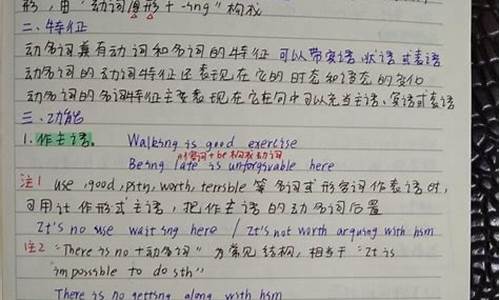 形，由“动词原形+-ing”构成
二、特征
动名词具有动词和名词的特征 可以带宾语、状语或表语
动名词的动词特征还表现在它的时态和语态的变化
动名词的名词特征主要表现在它在句中可以充当主语、宾语或表语
三、功能
1. 作主语。 Walking is good exercise
形容词+be构成动词
Being late is unforgivable here
注1 use, good, pity, worth, terrible 等名词或形容词作表语时,
可用it作形式主语，把作主语的动名词后置
It's no use waiting here / It's not worth arguing with him
注2 “There is no +动名词” 为常见结构，相当于“It is
impossible to do sth”
There is no getting along with him